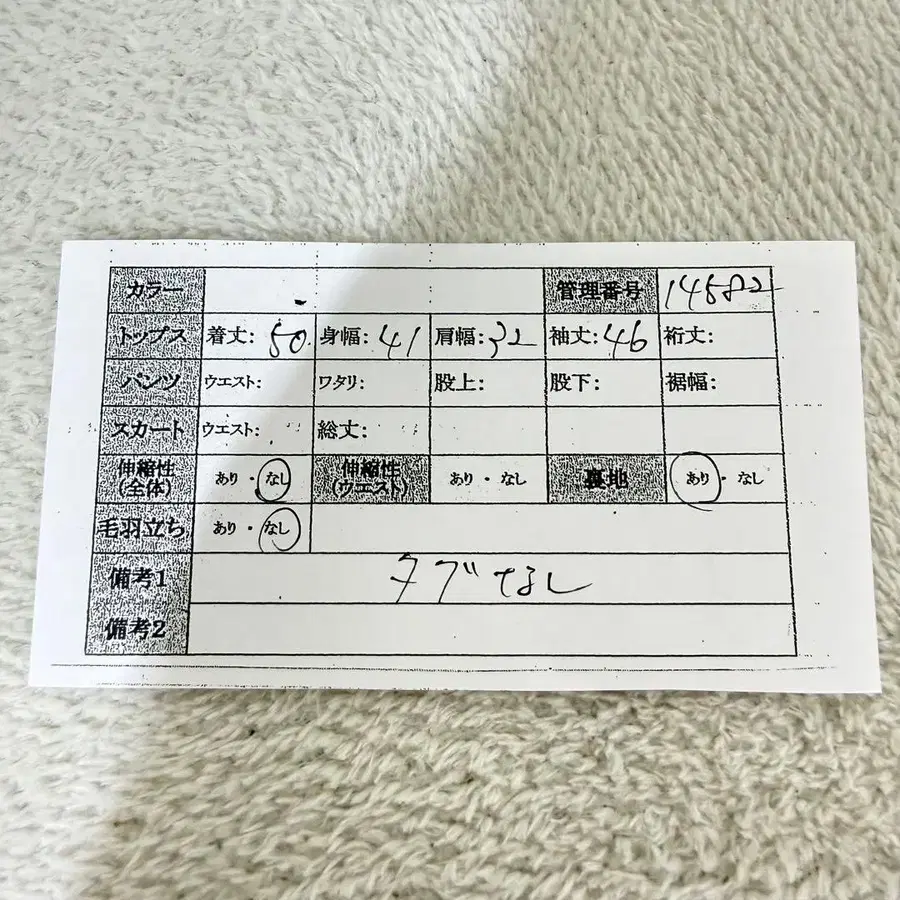 カラー 管理番号 14582
トップス 着丈: 50 身幅: 41 肩幅: 32 袖丈: 46 裄丈:
パンツ ウエスト: ワタリ: 股上: 股下: 裾幅:
スカート ウエスト: 総丈:
伸縮性(全体) あり・なし 伸縮性(ウエスト) あり・なし 裏地 あり・なし
毛羽立ち あり・なし
備考1 タブなし
備考2